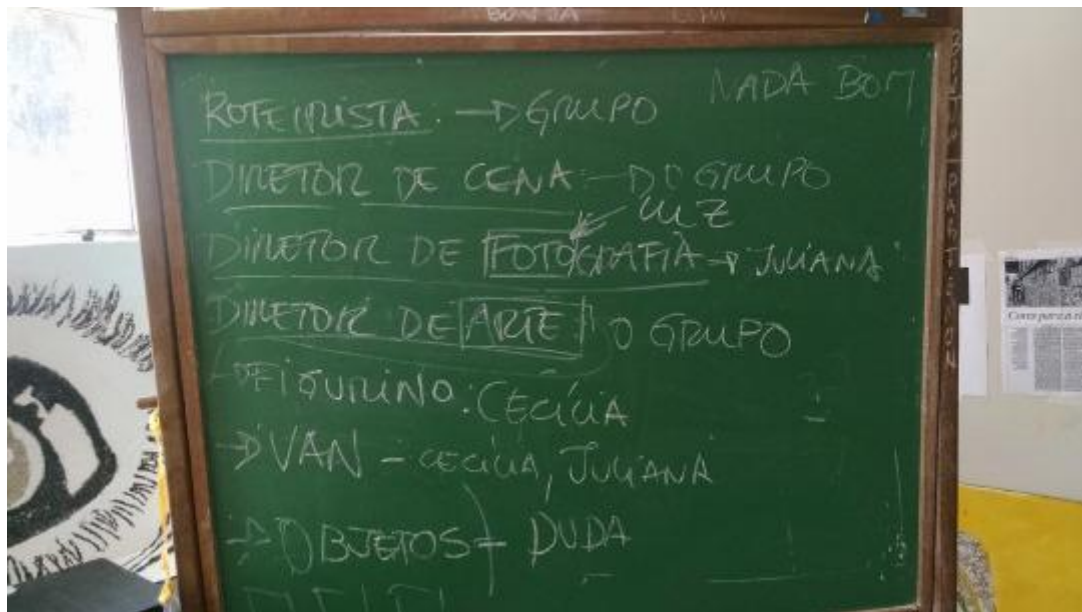 NADA BOM
ROTEIRISTA: → GRUPO
DIRETOR DE CENA: → O GRUPO
LUZ
DIRETOR DE FOTOGRAFIA → JULIANA
DIRETOR DE ARTE O GRUPO
→ FIGURINO: CECÍLIA
→ VAN - CECÍLIA, JULIANA
→ OBJETOS - DUDA